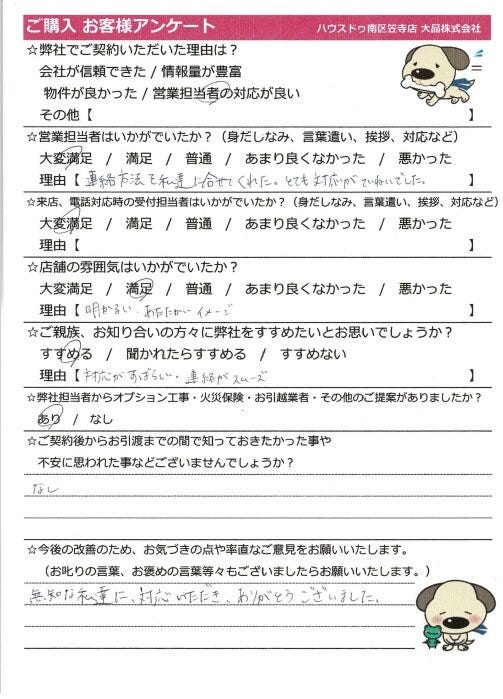 ご購入 お客様アンケート ハウスドゥ南区笠寺店 大品株式会社
☆弊社でご契約いただいた理由は？
会社が信頼できた / 情報量が豊富
物件が良かった / 営業担当者の対応が良い
その他【 】
☆営業担当者はいかがでいたか？（身だしなみ、言葉遣い、挨拶、対応など）
大変満足 / 満足 / 普通 / あまり良くなかった / 悪かった
理由【 連絡方法も私達に合せてくれた。とても対応がていねいでした。 】
☆来店、電話対応時の受付担当者はいかがでいたか？（身だしなみ、言葉遣い、挨拶、対応など）
大変満足 / 満足 / 普通 / あまり良くなかった / 悪かった
理由【 】
☆店舗の雰囲気はいかがでいたか？
大変満足 / 満足 / 普通 / あまり良くなかった / 悪かった
理由【 明かるい・あたたかいイメージ 】
☆ご親族、お知り合いの方々に弊社をすすめたいとお思いでしょうか？
すすめる / 聞かれたらすすめる / すすめない
理由【 対応がすばらい・連絡がスムーズ 】
☆弊社担当者からオプション工事・火災保険・お引越業者・その他のご提案がありましたか？
あり / なし
☆ご契約後からお引渡までの間で知っておきたかった事や
不安に思われた事などございませんでしょうか？
なし
☆今後の改善のため、お気づきの点や率直なご意見をお願いいたします。
（お叱りの言葉、お褒めの言葉等々もございましたらお願いいたします。）
無知な私達に、対応いただき、ありがとうございました。